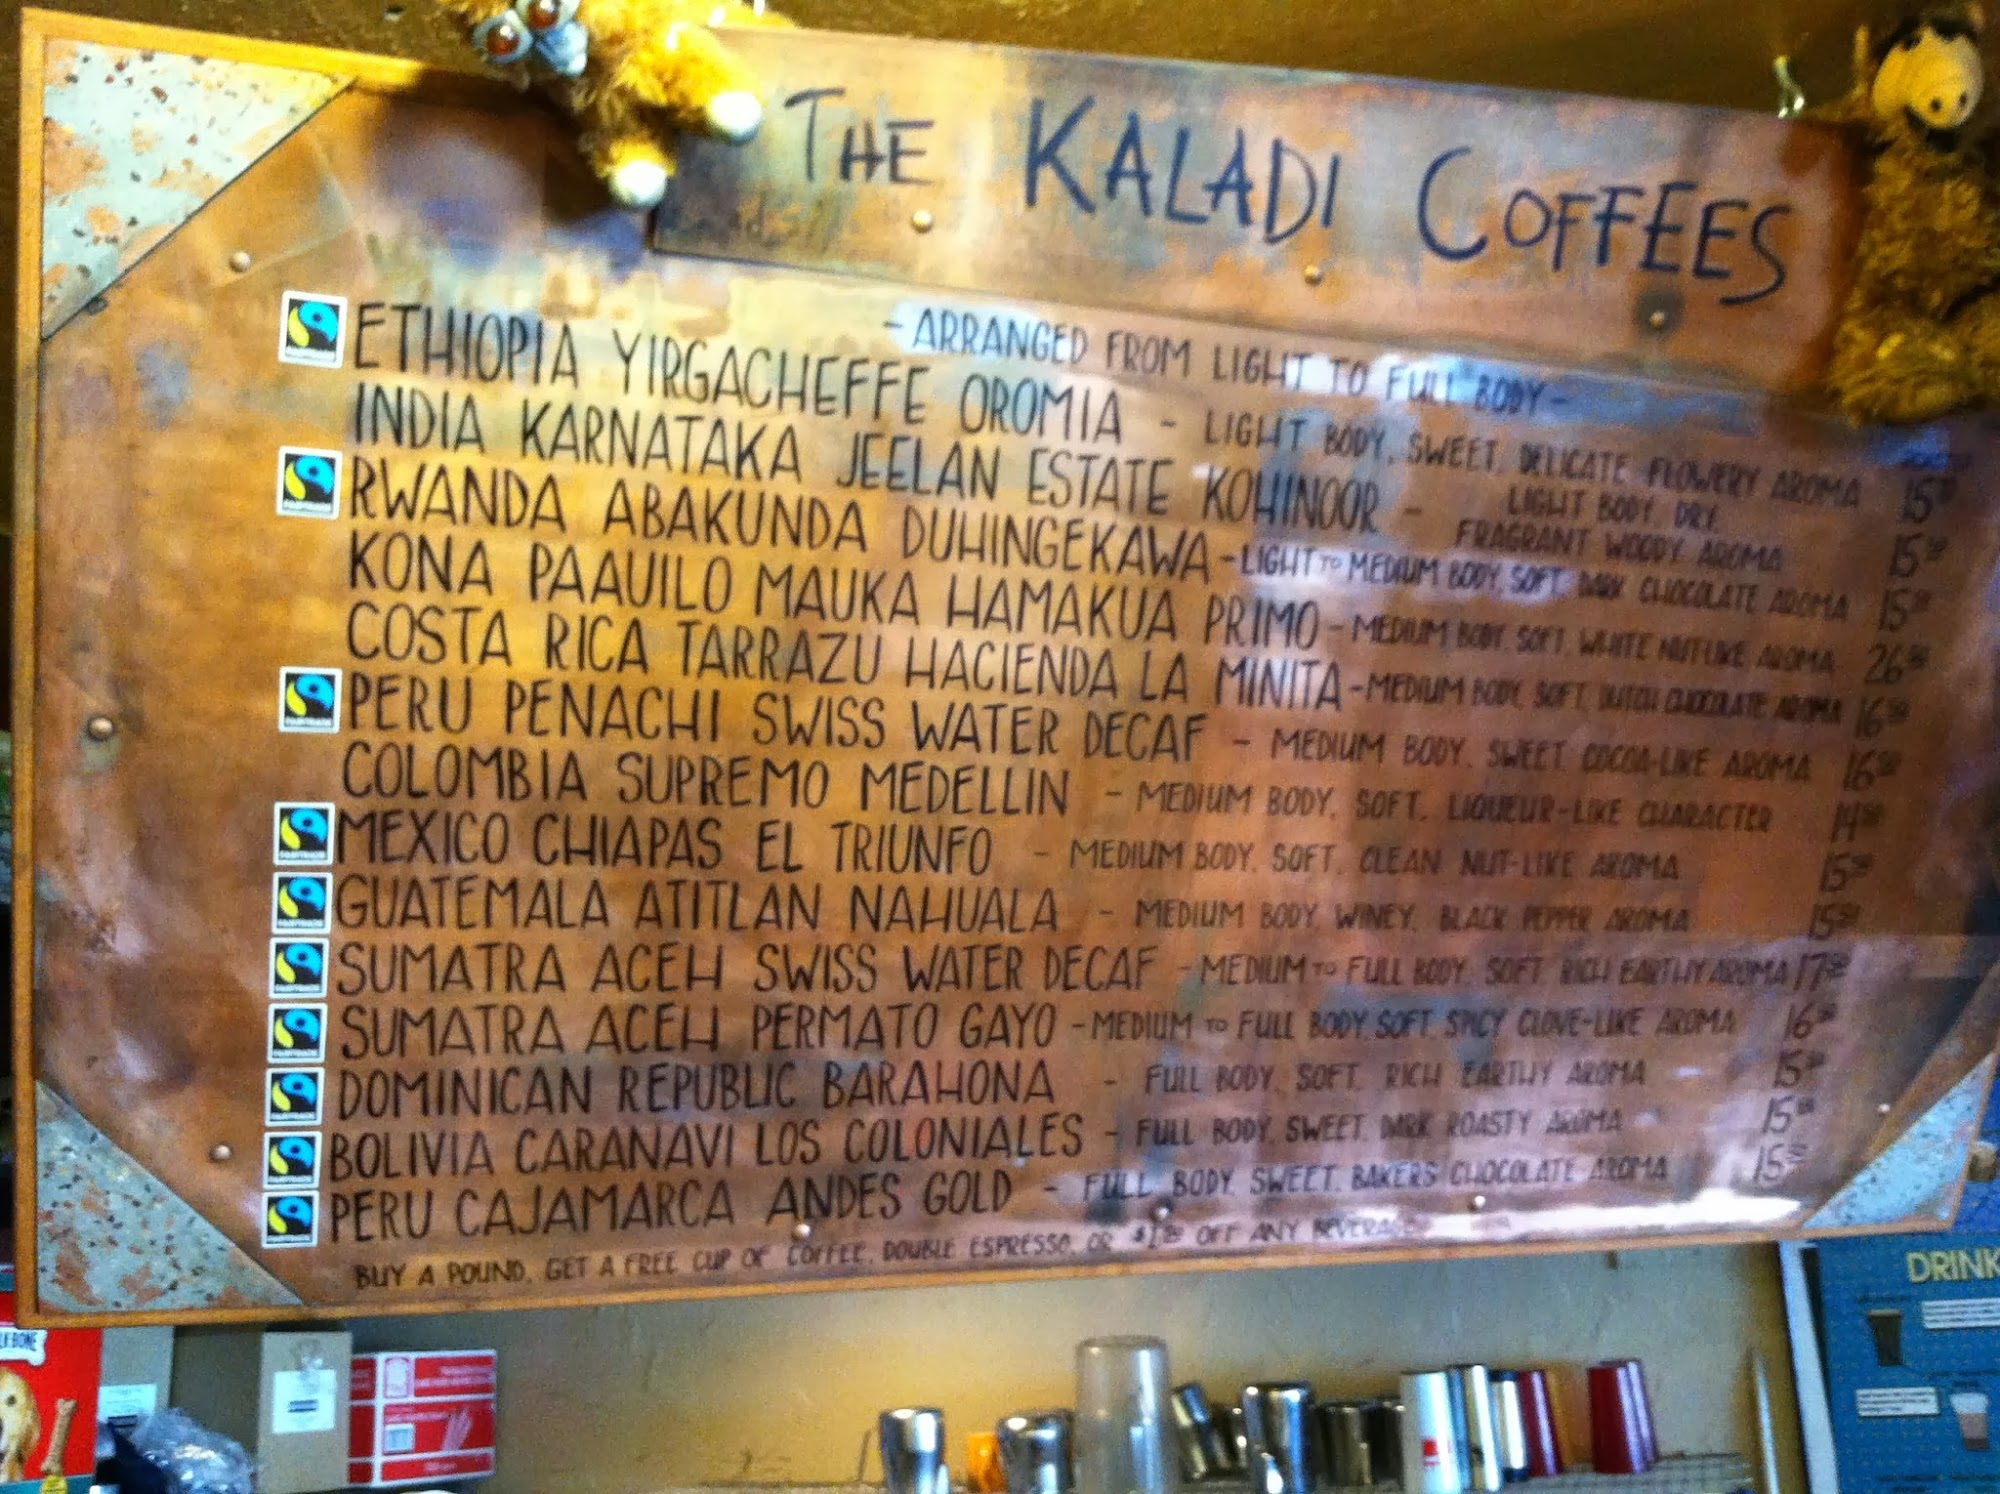 THE KALADI COFFEES
- ARRANGED FROM LIGHT TO FULL BODY -
ETHIOPIA YIRGACHEFFE OROMIA - LIGHT BODY, SWEET, DELICATE FLOWERY AROMA 15
INDIA KARNATAKA JEELAN ESTATE KOHINOOR - LIGHT BODY, DRY,
FRAGRANT WOODY AROMA 15
RWANDA ABAKUNDA DUHINGEKAWA - LIGHT TO MEDIUM BODY, SOFT, DARK CHOCOLATE AROMA 15
KONA PAAUILO MAUKA HAMAKUA PRIMO - MEDIUM BODY, SOFT, WHITE NUTLIKE AROMA 26
COSTA RICA TARRAZU HACIENDA LA MINITA - MEDIUM BODY, SOFT, DUTCH CHOCOLATE AROMA 16
PERU PENACHI SWISS WATER DECAF - MEDIUM BODY, SWEET, COCOA-LIKE AROMA 16
COLOMBIA SUPREMO MEDELLIN - MEDIUM BODY, SOFT, LIQUEUR-LIKE CHARACTER 14
MEXICO CHIAPAS EL TRIUNFO - MEDIUM BODY, SOFT, CLEAN NUT-LIKE AROMA 15
GUATEMALA ATITLAN NAHUALA - MEDIUM BODY, WINEY, BLACK PEPPER AROMA 15
SUMATRA ACEH SWISS WATER DECAF - MEDIUM TO FULL BODY, SOFT, RICH EARTHY AROMA 17
SUMATRA ACEH PERMATO GAYO - MEDIUM TO FULL BODY, SOFT, SPICY CLOVE-LIKE AROMA 16
DOMINICAN REPUBLIC BARAHONA - FULL BODY, SOFT, RICH EARTHY AROMA 15
BOLIVIA CARANAVI LOS COLONIALES - FULL BODY, SWEET, DARK ROASTY AROMA 15
PERU CAJAMARCA ANDES GOLD - FULL BODY, SWEET, BAKERS CHOCOLATE AROMA 15
BUY A POUND, GET A FREE CUP OF COFFEE, DOUBLE ESPRESSO, OR OFF ANY BEVERAGE
DRINK